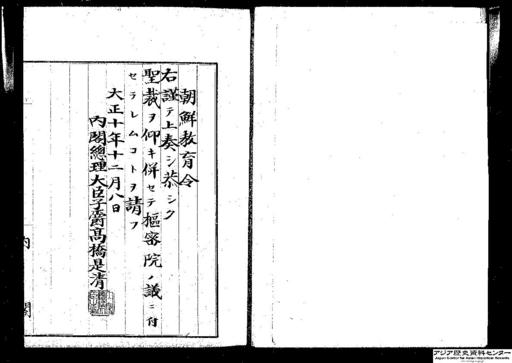 朝鮮教育令
右謹テ上奏シ恭シク
聖裁ヲ仰キ併セテ樞密院ノ議ニ付
セラレムコトヲ請フ
大正十年十二月八日
内閣總理大臣子爵髙橋是清
内閣
アジア歴史資料センター
Japan Center for Asian Historical Records